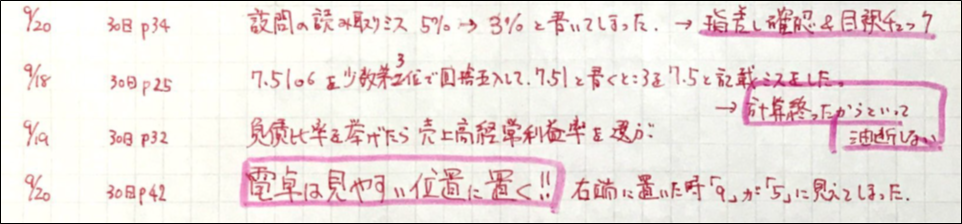 9/20 30日 p34 設問の読み取りミス 5% → 3% と書いてしまった. → 指差し確認 & 目視チェック
9/18 30日 p25 7.5106 を少数第3位で四捨五入して. 7.51 と書くところを 7.5 と記載ミスをした。
→ 計算終ったからといって
油断しない
9/19 30日 p32 負債比率を挙げたら 売上高経常利益率を選ぶ
9/20 30日 p42 電卓は見やすい位置に置く!! 右端に置いた時「9」が「5」に見えてしまった.